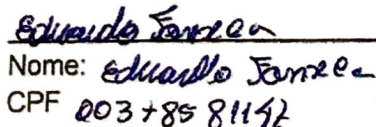 Eduardo Fonseca
Nome: Eduardo Fonseca
CPF 003785 81142